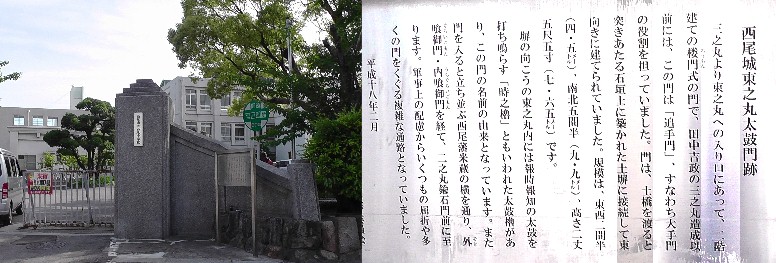 西尾城東之丸太鼓門跡
三之丸より東之丸への入り口にあって、二階
建ての楼門式の門で、田中吉政の三之丸造成以
前には、この門は「追手門」、すなわち大手門
の役割を担っていました。門は、土橋を渡ると
突きあたる石垣上に築かれた土塀に接続して東
向きに建てられていました。規模は、東西二間半
(四・五㍍)、南北五間半(九・九㍍)、高さ二丈
五尺五寸(七・六五㍍)です。
塀の向こうの東之丸内には報時報知の太鼓を
打ち鳴らす「時之櫓」ともいわれた太鼓櫓があ
り、この門の名前の由来となっています。また
門を入ると立ち並ぶ西尾藩米蔵の横を通り、外
喰御門・内喰御門を経て、二之丸鍮石門前に至
ります。軍事上の配慮からいくつもの屈折や多
くの門をくぐる複雑な通路となっていました。
平成十八年二月